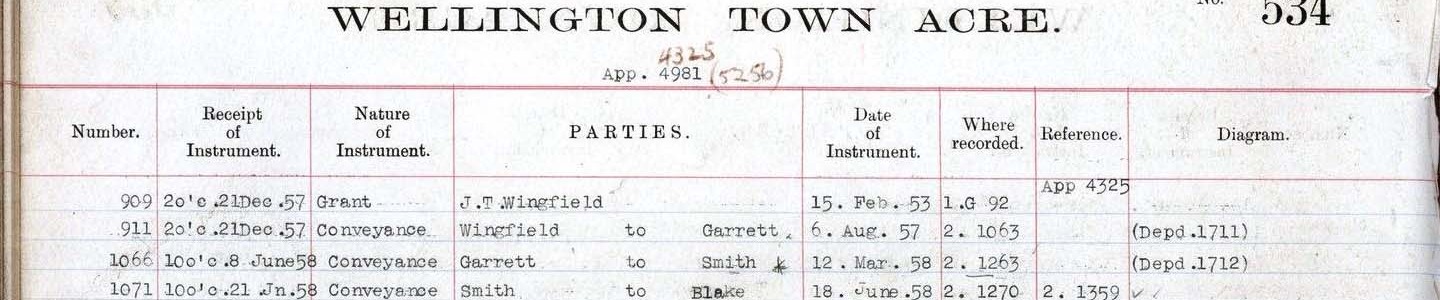 WELLINGTON TOWN ACRE. No. 534
4325
App. 4981 (5256)
Number. Receipt of Instrument. Nature of Instrument. PARTIES. Date of Instrument. Where recorded. Reference. Diagram.
App 4325
909 2o'c.21Dec.57 Grant J.T.Wingfield 15. Feb. 53 1.G 92
911 2o'c.21Dec.57 Conveyance Wingfield to Garrett. 6. Aug. 57 2. 1063 (Depd.1711)
1066 10o'c.8 June58 Conveyance Garrett to Smith 12. Mar. 58 2. 1263 (Depd.1712)
1071 10o'c.21 Jn.58 Conveyance Smith to Blake 18. June.58 2. 1270 2. 1359